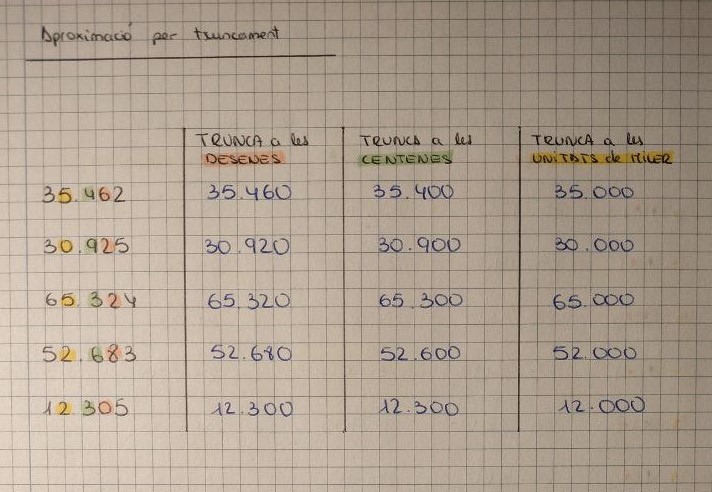 Aproximació per truncament
TRUNCA a les DESENES
TRUNCA a les CENTENES
TRUNCA a les UNITATS de MILER
35.462 35.460 35.400 35.000
30.925 30.920 30.900 30.000
65.324 65.320 65.300 65.000
52.683 52.680 52.600 52.000
12.305 12.300 12.300 12.000